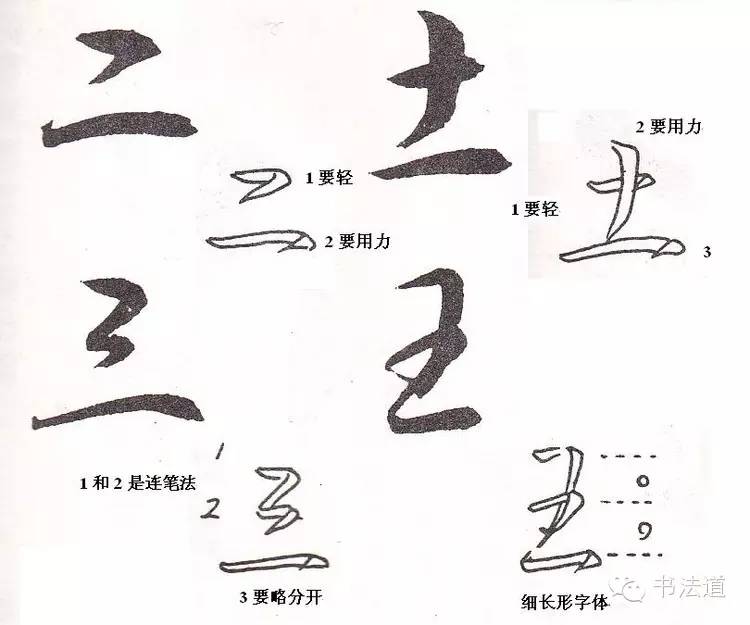 二
土
2要用力
1要轻
1要轻
2要用力
3
三
王
1和2是连笔法
1
2
3要略分开
细长形字体
书法道